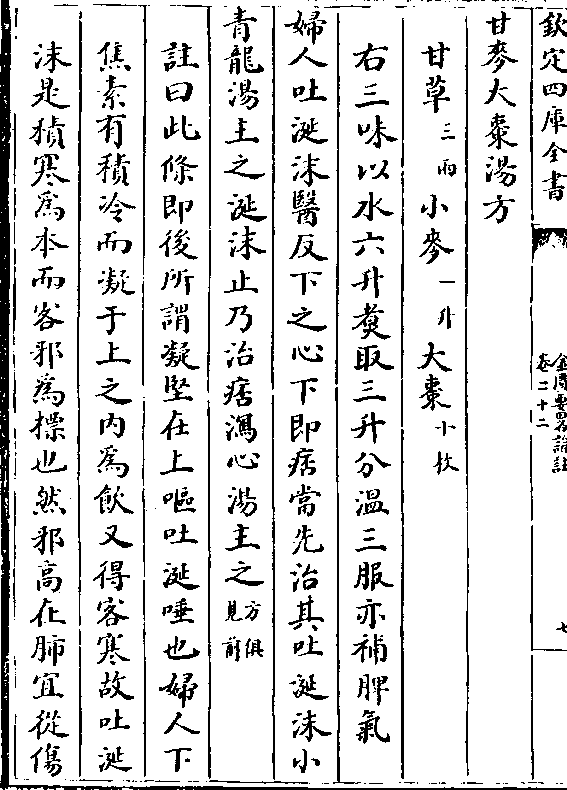 欽定四庫全書
金匱要畧論註
卷二十二
七
甘麥大棗湯方
甘草三兩 小麥一升 大棗十枚
右三味以水六升煑取三升分温三服亦補脾氣
婦人吐涎沫醫反下之心下即痞當先治其吐涎沫小
青龍湯主之涎沫止乃治痞瀉心湯主之方俱見前
註曰此條即後所謂凝堅在上嘔吐涎唾也婦人下
焦素有積冷而凝于上之内為飲又得客寒故吐涎
沫是積寒為本而客邪為標也然邪高在肺宜從傷